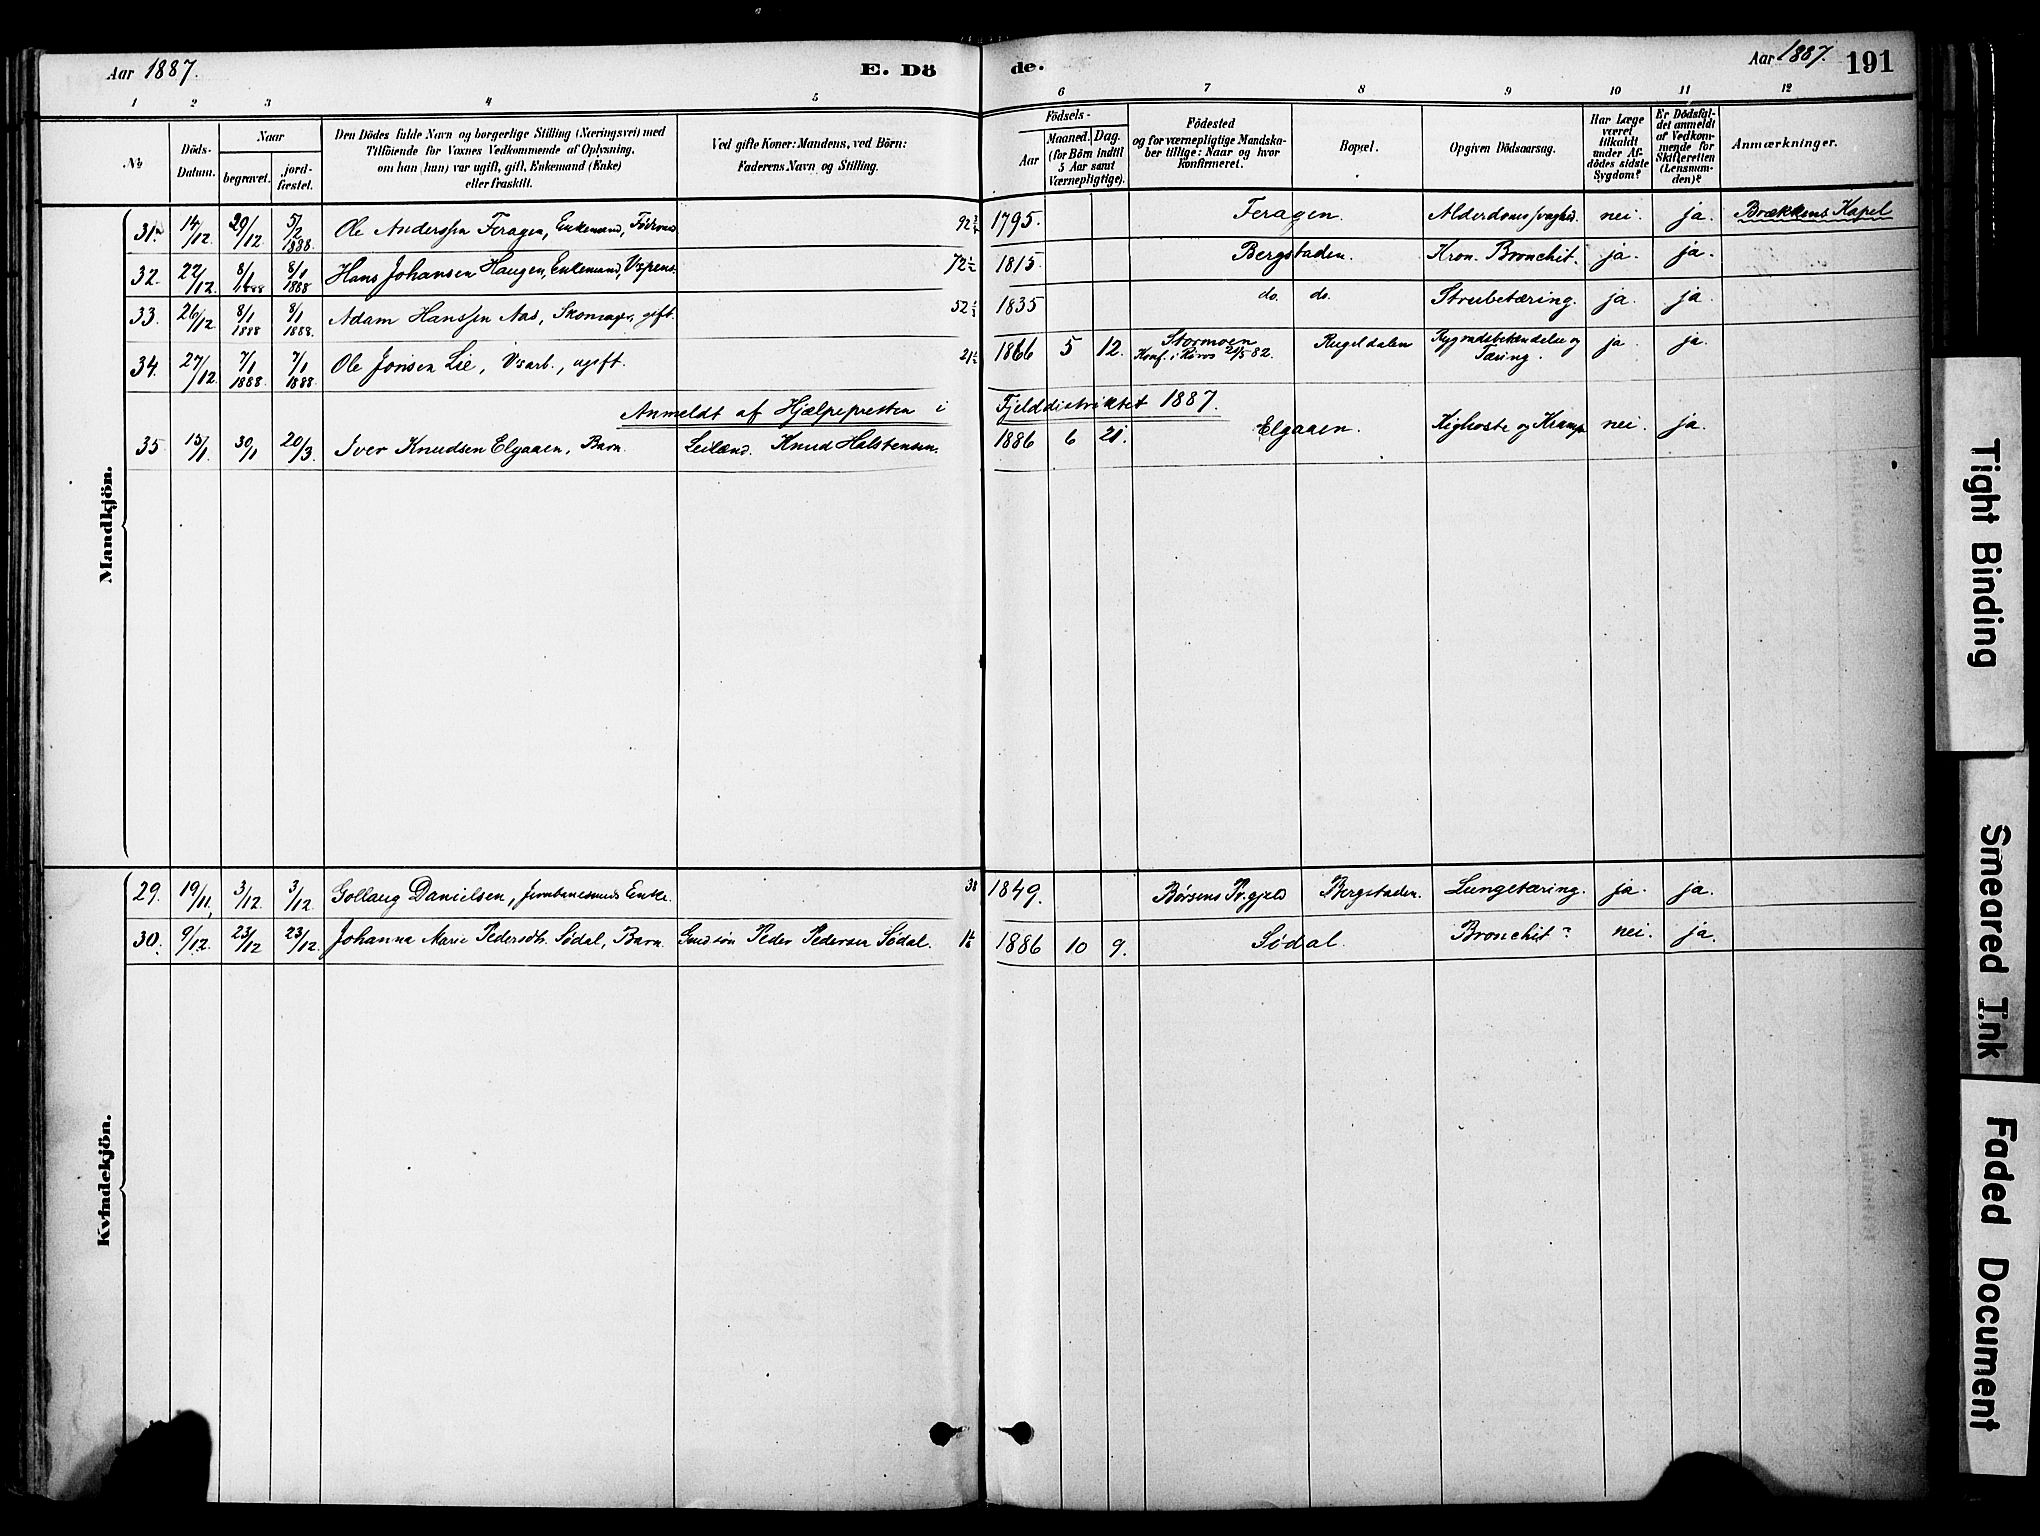 Aar 1887.
E. Dö
de.
Aar 1887.
191
1 2 3 4 5 6 7 8 9 10 11 12
No
Döds-
Datum.
Naar
begravet.
jord-
fæstet.
Den Dödes fulde Navn og borgerlige Stilling (Næringsvei) med
Tilföiende for Voxnes Vedkommende af Oplysning,
om han (hun) var ugift, gift, Enkemand (Enke)
eller fraskilt.
Ved gifte Koner: Mandens, ved Börn:
Faderens Navn og Stilling.
Födsels-
Aar
Maaned. Dag.
(for Börn indtil
5 Aar samt
Værnepligtige).
Födested
og for værnepligtige Mandska-
ber tillige: Naar og hvor
konfirmeret.
Bopæl.
Opgiven Dödsaarsag.
Har Læge
været
tilkaldt
under Af-
dödes sidste
Sygdom?
Er Dödsfal-
det anmeldt
af Vedkom-
mende for
Skifteretten
(Lensman-
den)?
Anmærkninger.
Mandkjön.
31. 14/12. 29/12 5/2 1888. Ole Anderssen Feragen, Enkemand, 92 1795. Feragen. nei. ja. Brækkens Kapel
32. 22/12. 8/1 1888 8/1 1888 Hans Johansen Haugen, Enkemand, 72 1/2 1815. Bergstaden. Kron. Bronchit. ja. ja.
33. 26/12 8/1 1888 8/1 1888. Adam Hanssen Aas, gift. 52 1/2 1835 do. do. Strubetæring. ja. ja.
34. 27/12 7/1 1888. 7/1 1888. Ole Jonsen Lie, ugift. 21 1/2 1866 5 12. Stormoen Rugeldalen ja ja.
Konf. i Röros 21/5 82. Tæring.
Anmeldt af Hjælpepresten i Fjelddistriktet 1887.
35 15/1. 30/1 20/3. Iver Knudsen Elgaaen, Barn. Leilænd. Knud Halstensen. 1886 6 21. Elgaaen. Kighoste og Kramp nei. ja.
Kvindekjön.
29. 19/11, 3/12. 3/12. Gollaug Danielsen, Enke. 38 1849. Børsens Pr.gjeld Bergstaden. Lungetæring. ja. ja.
30. 9/12. 23/12 23/12. Johanna Marie Pedersdtr. Sødal, Barn. Peder Pedersen Sødal. 1 1/6 1886 10 9. Sødal. Bronchit? nei. ja.
Tight Binding
Smeared Ink
Faded Document